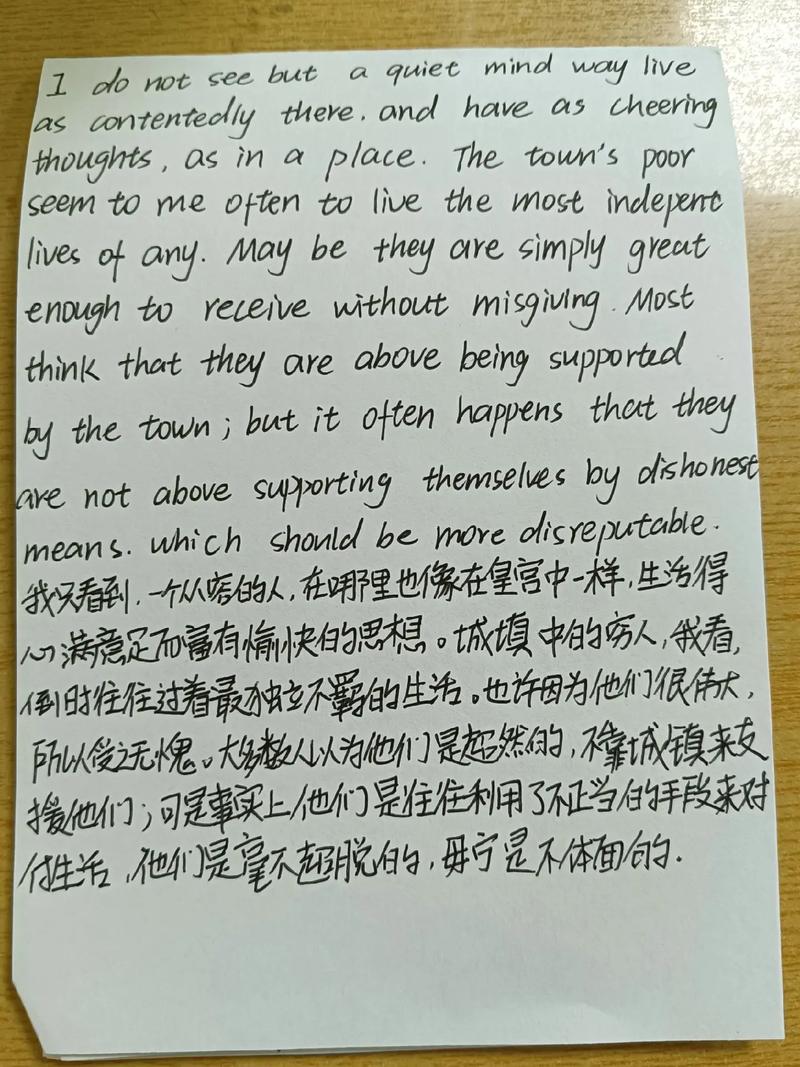 I do not see but a quiet mind way live
as contentedly there. and have as cheering
thoughts, as in a place. The town's poor
seem to me often to live the most indepent
lives of any. May be they are simply great
enough to receive without misgiving. Most
think that they are above being supported
by the town; but it often happens that they
are not above supporting themselves by dishonest
means. which should be more disreputable.
我只看到,一个从容的人,在哪里也像在皇宫中一样,生活得
心满意足而富有愉快的思想。城填中的穷人,我看,
倒时往往过着最独立不羁的生活。也许因为他们很伟大,
所以受之无愧。大多数人以为他们是超然的,不靠城镇来支
援他们;可是事实上他们是往往利用了不正当的手段来对
付生活,他们是毫不超脱的,毋宁是不体面的.